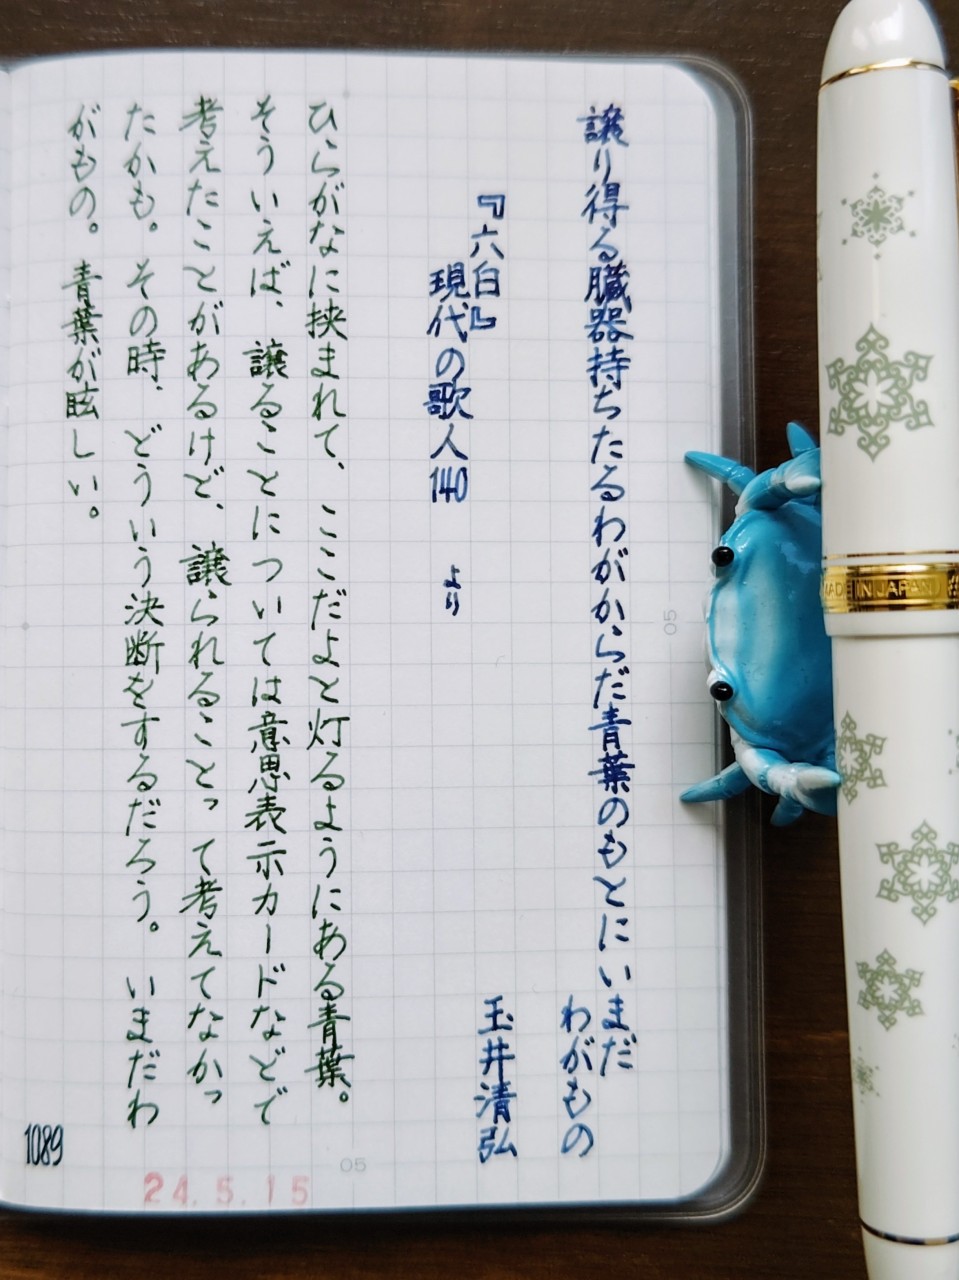 譲り得る臓器持ちたるわがからだ青葉のもとにいまだ
わがもの
『六白』
現代の歌人140 より
玉井清弘
ひらがなに挟まれて、ここだよと灯るようにある青葉。
そういえば、譲ることについては意思表示カードなどで
考えたことがあるけど、譲られることって考えてなかっ
たかも。その時、どういう決断をするだろう。いまだわ
がもの。青葉が眩しい。
1089
24.5.15
05
05
MADE IN JAPAN